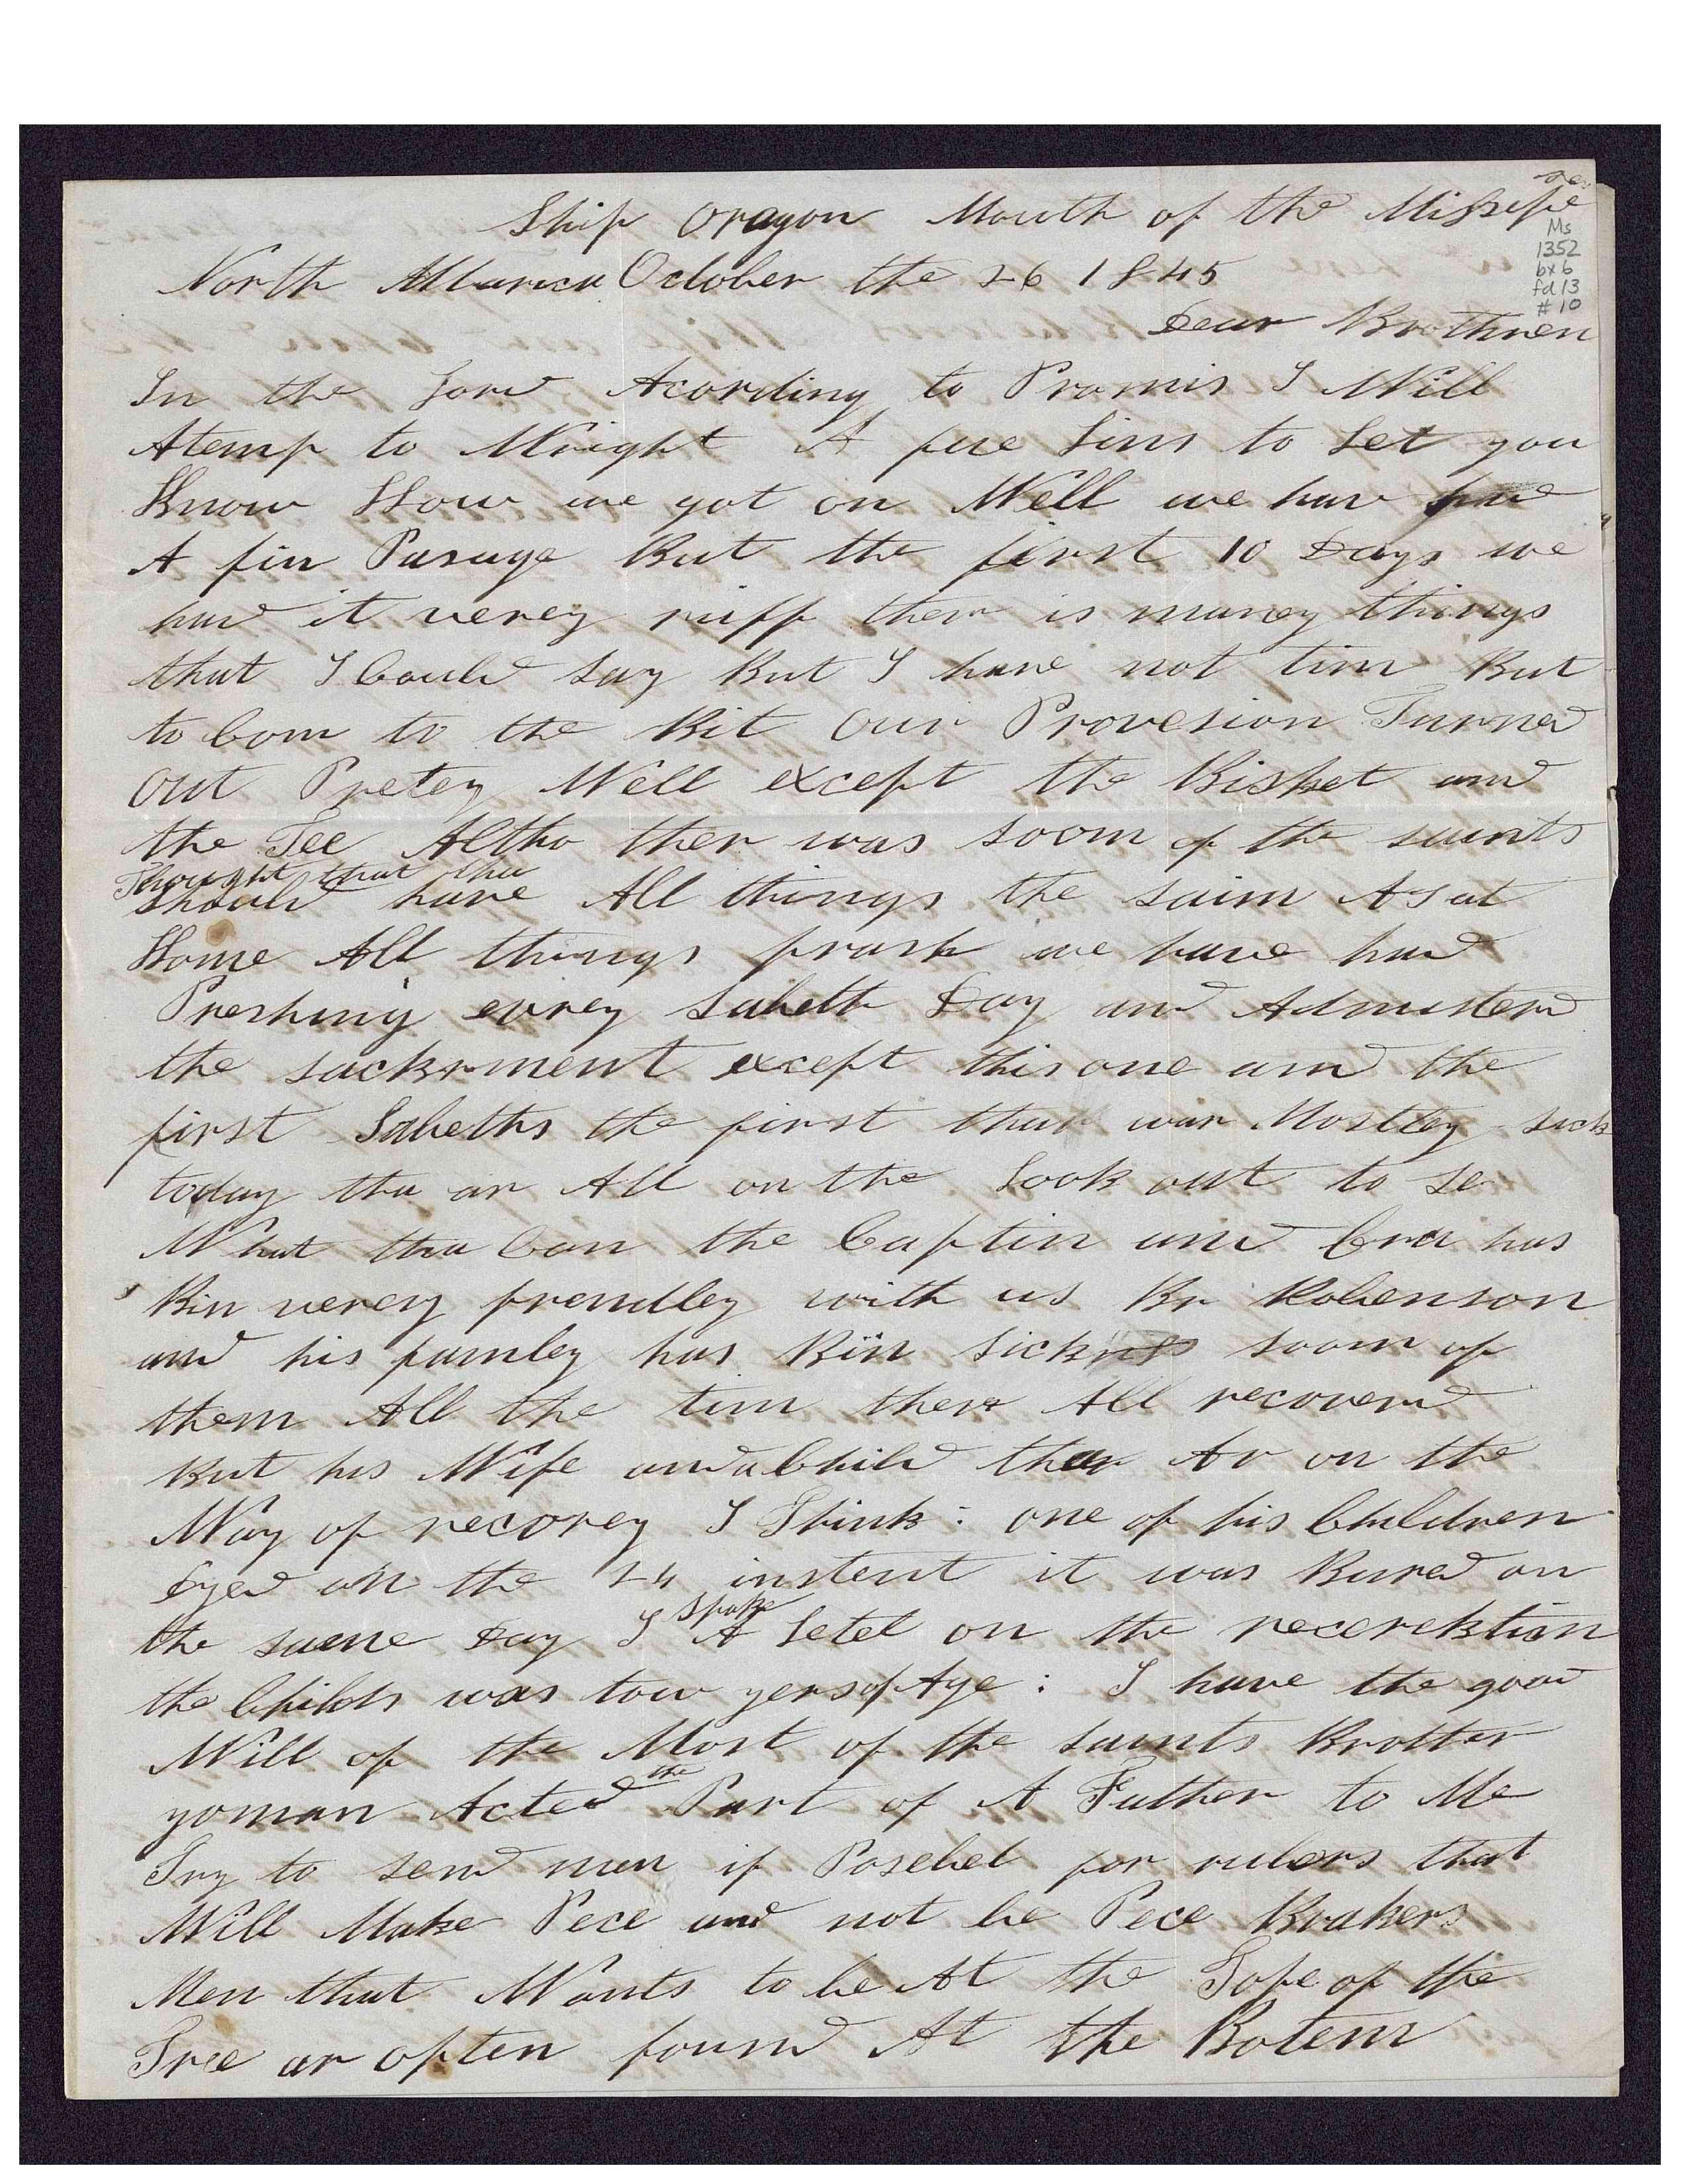 Ship Oragon Mouth of the Missepe
Ms
1352
bx 6
fd 13
# 10
North Allarica October the 26 1845
Dear Brothren
In the Lord Acording to Promis I Will
Atemp to Wright A fue Lins to Let you
Know How we got on Well we hav had
A fin Pasage But the first 10 Days we
had it verey ruff ther is maney things
that I Could say But I have not tim But
to Com to the Bit Our Provesion Turned
out Pretey Well except the Bisket and
the Tee Altho ther was soom of the saints
Thought that tha
should have All things the saim As at
Home All things frash we have had
Preshing evrey Sabeth Day and Admisterd
the sackrment except this one and the
first Sabeths the first thar war Mostley sick
today tha ar All on the Look out to se
What tha Can the Captin and Cru has
Bin verey frendley with us Br Robenson
and his famley has Bin sick soom of
them All the tim ther All recoverd
But his Wife and a Child thar Ar on the
Way of recovrey I Think : one of his Children
Dyed on the 24 instent it was Bured on
the saene Day I spoke A Letel on the recerektion
the Childs was tow yers of Age : I have the good
Will of the Most of the saints Brotter
yoman Acted the Part of A Father to Me
Try to send men if Posebel for rulors that
Will Make Pece and not be Pece Brakers
Men that Wants to be At the Tope of the
Tree ar often found At the Botem